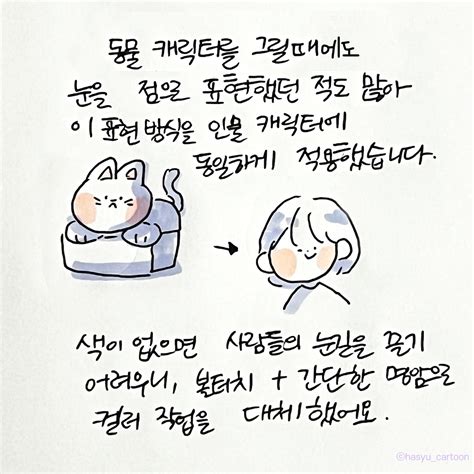 동물 캐릭터를 그릴때에도
눈을 점으로 표현했던 적도 많아
이 표현 방식을 인물 캐릭터에
동일하게 적용했습니다.
색이 없으면 사람들의 눈길을 끌기
어려우니, 볼터치 + 간단한 명암으로
컬러 작업을 대체했어요.
ⓒhasyu_cartoon